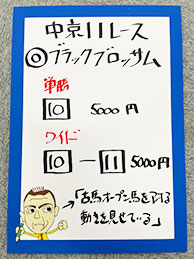 中京11レース
◎ブラックブロッサム
単勝
10 5000円
ワイド
10 ー 11 5000円
「古馬オープン馬を
動きを見せている」